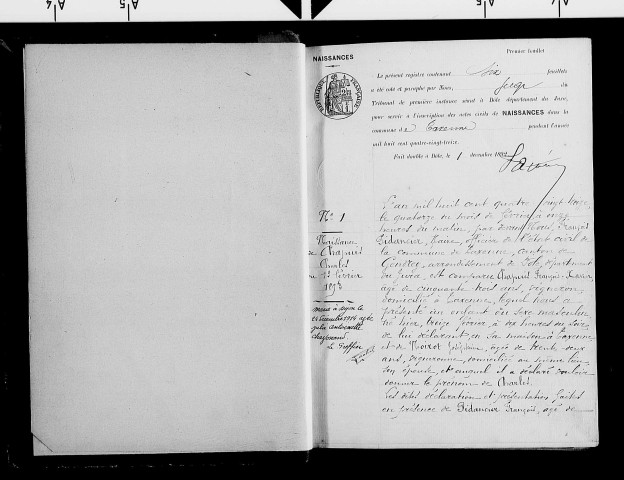 NAISSANCES
Premier feuillet
Le présent registre contenant six feuillets
a été coté et paraphé par Nous, Juge du
Tribunal de première instance séant à Dole département du Jura,
pour servir à l'inscription des actes civils de NAISSANCES dans la
commune de Taxenne pendant l'année
mil huit cent quatre-vingt-treize.
Fait double à Dole, le 1 décembre 1892
RÉPUBLIQUE FRANÇAISE
N° 1
Naissance
de Chapuis
Charles
le 13 février
1893
marié à
décembre 1914
Le Greffier
L'an mil huit cent quatre vingt treize,
le quatorze du mois de février à onze
heures du matin, par devant Nous, François
Gidancier, Maire, officier de l'état civil de
la commune de Taxenne, canton de
Gendrey, arrondissement de Dole, département
du Jura, est comparu Chapuis François Xavier,
âgé de cinquante trois ans, vigneron,
domicilié à Taxenne, lequel nous a
présenté un enfant du sexe masculin,
né hier, treize février, à dix heures du soir,
de lui déclarant, en sa maison à Taxenne
et de Noirot âgée de trente deux
ans, vigneronne, domiciliée au même lieu,
son épouse, et auquel il a déclaré vouloir
donner le prénom de Charles.
Les dites déclaration et présentation faites
en présence de Gidancier François, âgé de